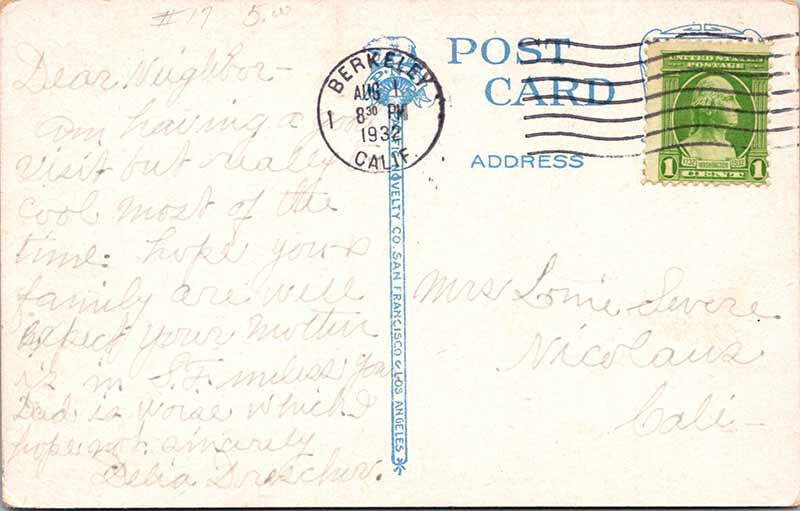 #17 5.00
Dear Neighbor -
am having a
visit but really
cool most of the
time. hope you &
family are well
expect your Mother
is in S.F. unless your
Dad is worse which I
hope not. sincerely
Delia
BERKELEY
AUG 1
8 30 PM
1
1932
CALIF.
POST
CARD
ADDRESS
PACIFIC NOVELTY CO. SAN FRANCISCO & LOS ANGELES
UNITED STATES
POSTAGE
1732 WASHINGTON 1932
1 CENT 1
Mrs Severe
Nicolaus
Cali -